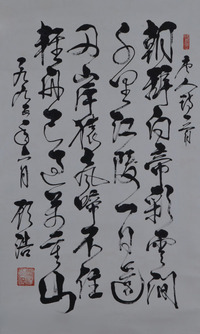 唐人诗一首
朝辭白帝彩雲間
千里江陵一日還
兩岸猿聲啼不住
輕舟已過萬重山
一九九 年 月 顾浩